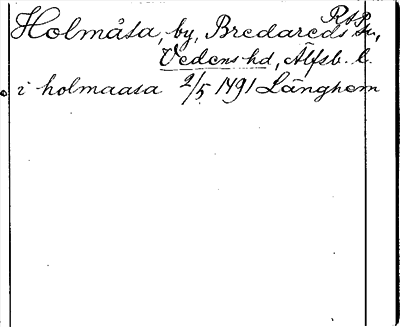 Holmåsa, by, Bredareds sn,
Vedens hd, Älfsb. l.
i holmaasa 2/5 1491 Länghem